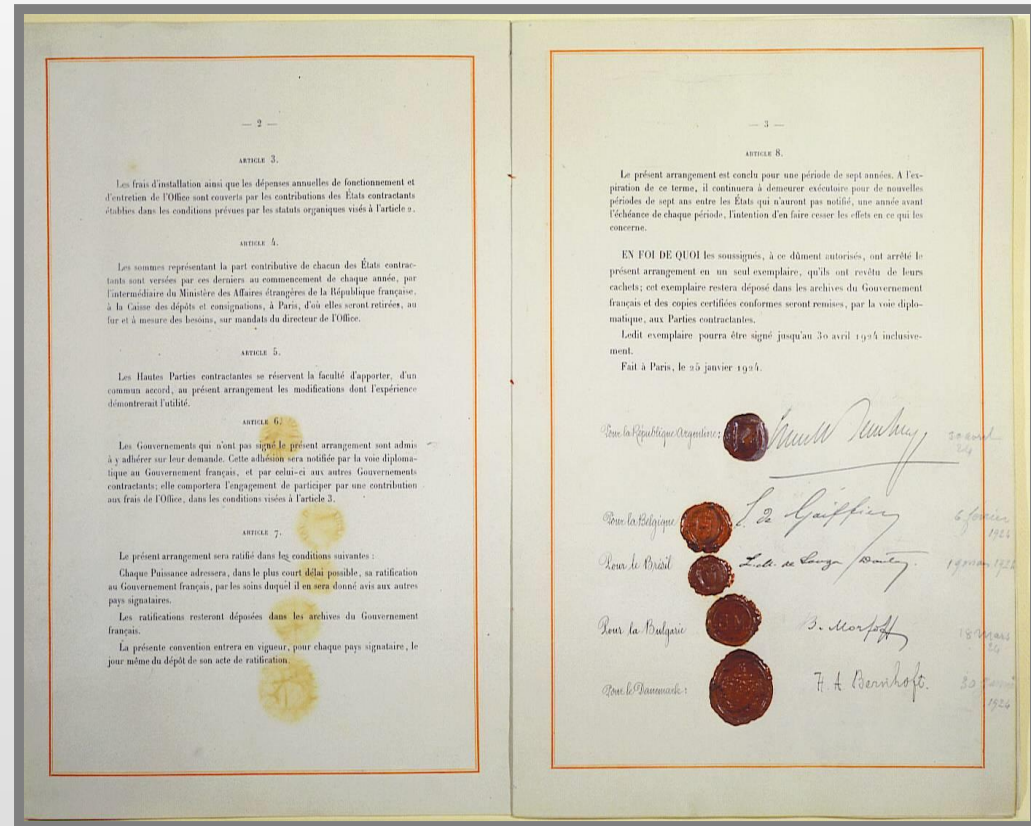 — 2 —
ARTICLE 3.
Les frais d'installation ainsi que les dépenses annuelles de fonctionnement et
d'entretien de l'Office sont couverts par les contributions des États contractants
établies dans les conditions prévues par les statuts organiques visés à l'article 2.
ARTICLE 4.
Les sommes représentant la part contributive de chacun des États contrac-
tants sont versées par ces derniers au commencement de chaque année, par
l'intermédiaire du Ministère des Affaires étrangères de la République française,
à la Caisse des dépôts et consignations, à Paris, d'où elles seront retirées, au
fur et à mesure des besoins, sur mandats du directeur de l'Office.
ARTICLE 5.
Les Hautes Parties contractantes se réservent la faculté d'apporter, d'un
commun accord, au présent arrangement les modifications dont l'expérience
démontrerait l'utilité.
ARTICLE 6.
Les Gouvernements qui n'ont pas signé le présent arrangement sont admis
à y adhérer sur leur demande. Cette adhésion sera notifiée par la voie diploma-
tique au Gouvernement français, et par celui-ci aux autres Gouvernements
contractants; elle comportera l'engagement de participer par une contribution
aux frais de l'Office, dans les conditions visées à l'article 3.
ARTICLE 7.
Le présent arrangement sera ratifié dans les conditions suivantes :
Chaque Puissance adressera, dans le plus court délai possible, sa ratification
au Gouvernement français, par les soins duquel il en sera donné avis aux autres
pays signataires.
Les ratifications resteront déposées dans les archives du Gouvernement
français.
La présente convention entrera en vigueur, pour chaque pays signataire, le
jour même du dépôt de son acte de ratification.
— 3 —
ARTICLE 8.
Le présent arrangement est conclu pour une période de sept années. A l'ex-
piration de ce terme, il continuera à demeurer exécutoire pour de nouvelles
périodes de sept ans entre les États qui n'auront pas notifié, une année avant
l'échéance de chaque période, l'intention d'en faire cesser les effets en ce qui les
concerne.
EN FOI DE QUOI les soussignés, à ce dûment autorisés, ont arrêté le
présent arrangement en un seul exemplaire, qu'ils ont revêtu de leurs
cachets; cet exemplaire restera déposé dans les archives du Gouvernement
français et des copies certifiées conformes seront remises, par la voie diplo-
matique, aux Parties contractantes.
Ledit exemplaire pourra être signé jusqu'au 30 avril 1924 inclusive-
ment.
Fait à Paris, le 25 janvier 1924.
Pour la République Argentine:
avril
24
Pour la Belgique
de Gaiffier
6 février
1924
Pour le Brésil
L. M. de Souza Dantas
19 mars 1924
Pour la Bulgarie
B. Morfoff
18 mars
24
Pour le Danemark:
H. A. Bernhoft.
30
1924